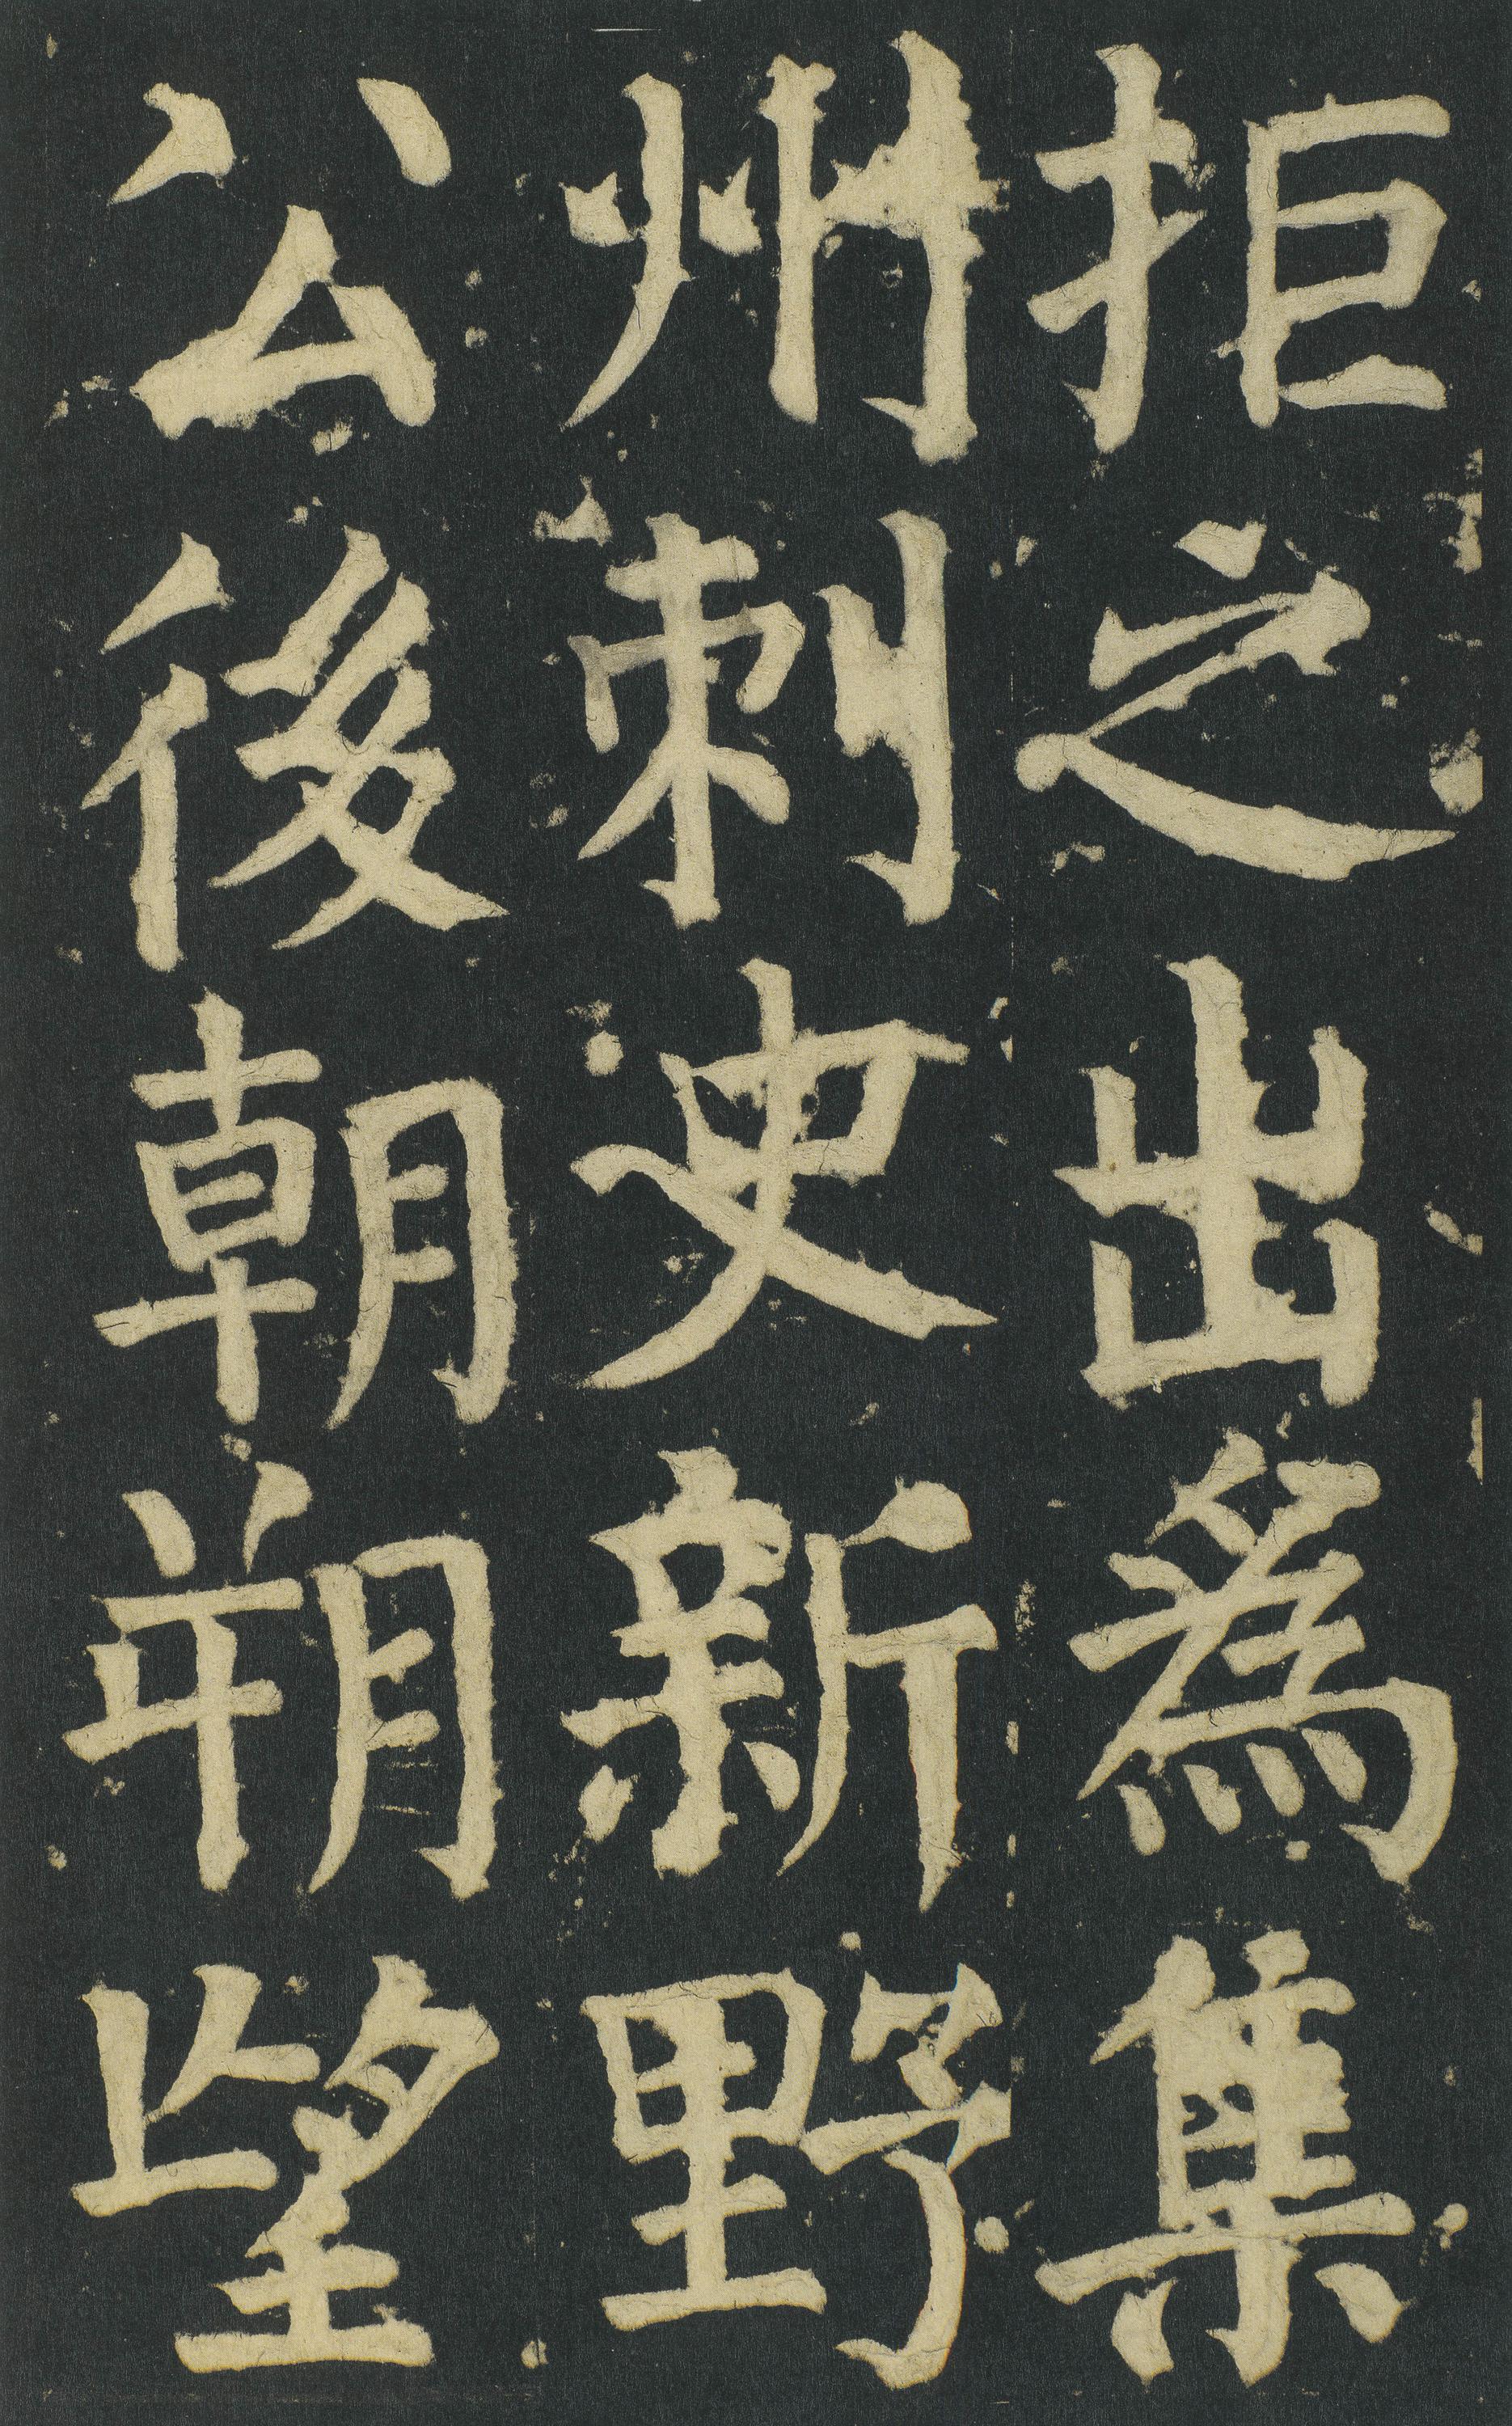 拒之出爲集
州刺史新野
公後朝朔望